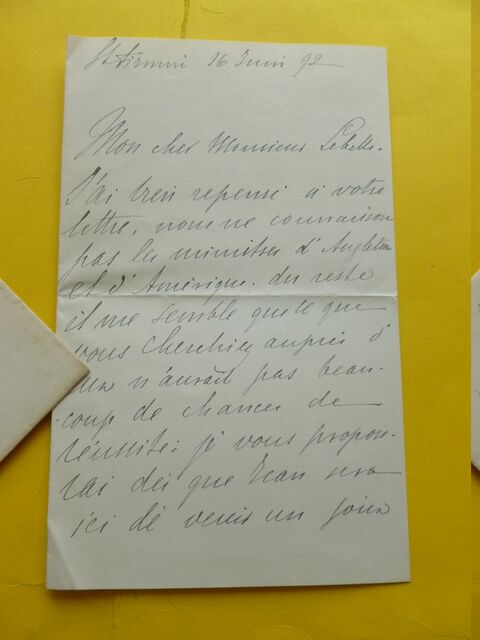 St Firmin 16 Juin 92
Mon cher Monsieur Lebelle.
J'ai bien repensé à votre
lettre, nous ne connaissons
pas les ministres d'Angleterre
et d'Amérique. du reste
il me semble que ce que
vous cherchiez auprès d'
eux n'aurait pas beau-
-coup de chances de
réussite; je vous propose-
rai dès que Jean sera
ici de venir un jour